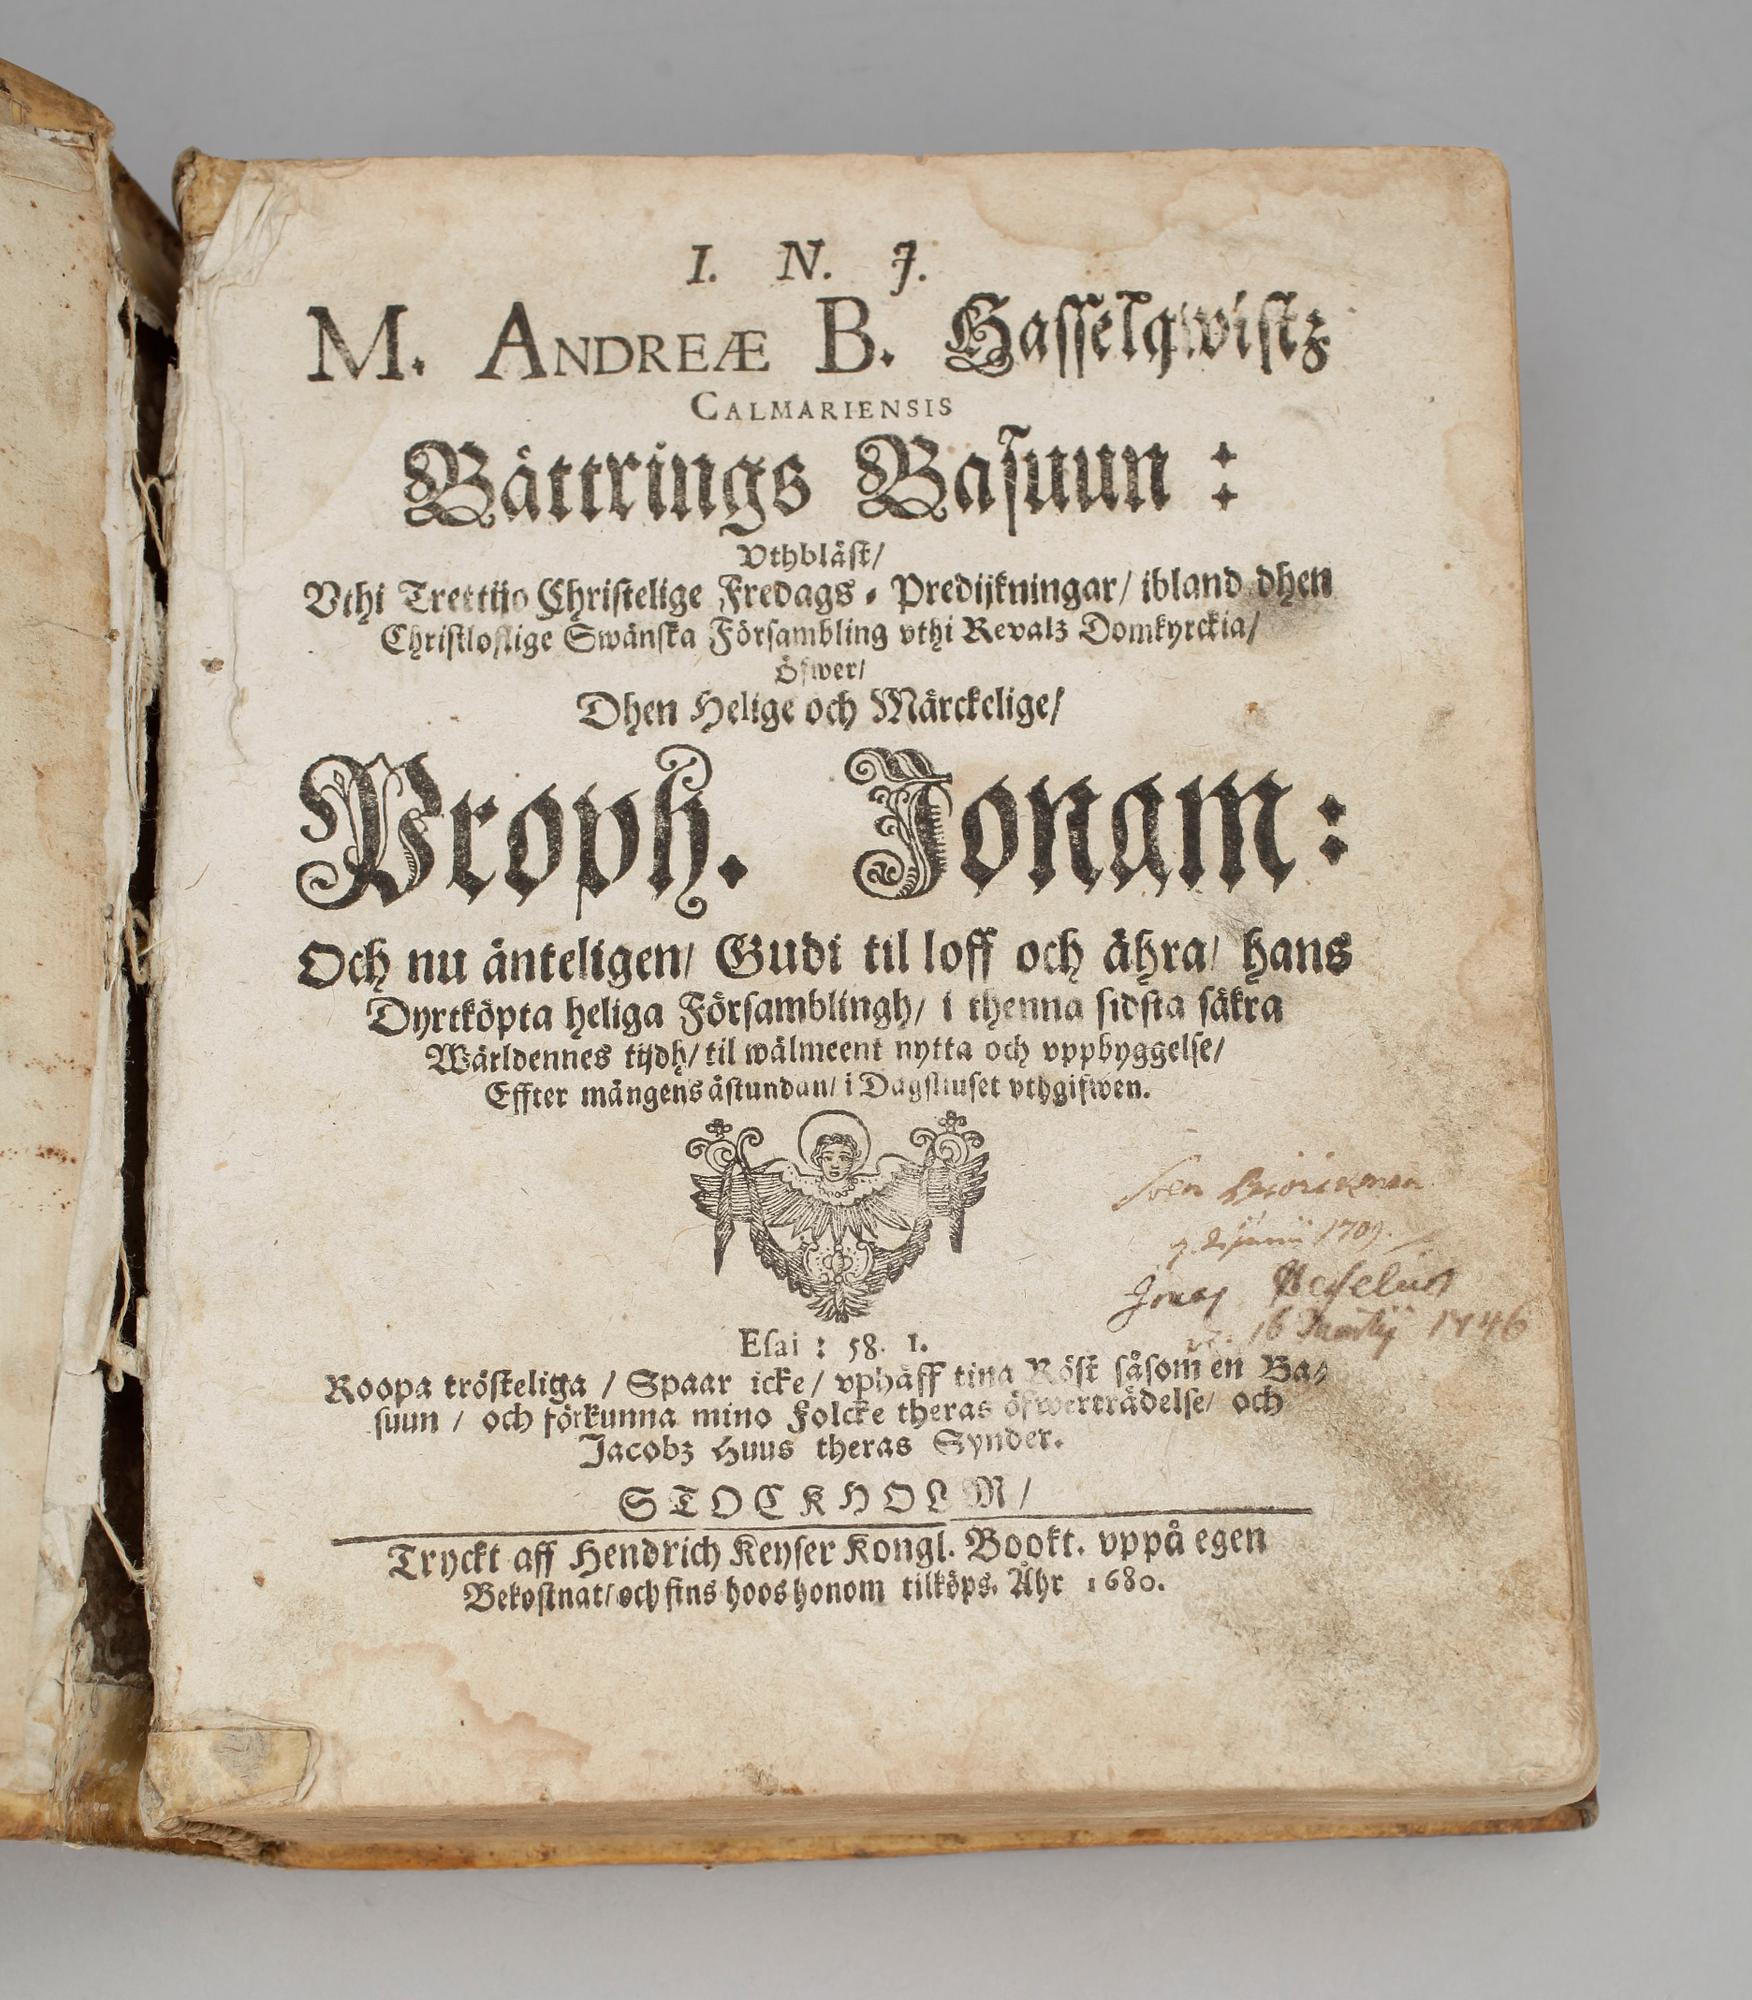 I. N. J.
M. ANDREÆ B. Hasselqwistz
CALMARIENSIS
Bättrings Basuun :
Vthbläst/
Vthi Trettijo Christelige Fredags - Predijkningar/ ibland dhen
Christlofflige Swänska Försambling vthi Revalz Domkyrckia/
Öfwer/
Dhen Helige och Märckelige/
Proph. Jonam :
Och nu änteligen/ Gudi til loff och ähra/ hans
Dyrtköpta heliga Församblingh/ i thenna sidsta säkra
Wärldennes tijdh/ til wälmeent nytta och vppbyggelse/
Effter mångens åstundan/ i Dagsliuset vthgifwen.
Sven
junii 1709.
Jonas
16 1746
Esai : 58. 1.
Roopa trösteliga / Spaar icke/ vphäff tina Röst såsom en Ba-
suun / och förkunna mino Folcke theras öfwerträdelse/ och
Jacobz Huus theras Synder.
STOCKHOLM/
Tryckt aff Hendrich Keyser Kongl. Bookt. vppå egen
Bekostnat/ och fins hoos honom tilköps. Åhr 1680.